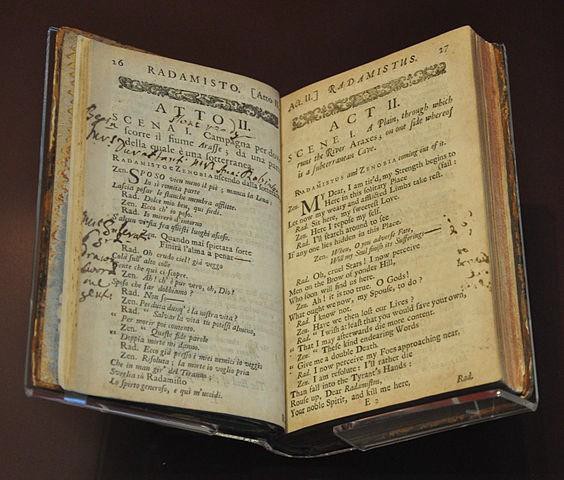 26 RADAMISTO. [Atto II.
ATTO II.
SCENA I. Campagna per dove
scorre il fiume Arasse; da una parte
della quale è una sotterranea
RADAMISTO e ZENOBIA uscendo dalla sotterranea
Zen. SPOSO vien meno il piè, manca la Lena:
In sì romita parte
Lascia posar le fianche membra afflitte.
Rad. Dolce mio ben, qui siedi.
Zen. Ecco ch' io poso.
Rad. Io mirerò d'intorno
S'alcun versa fra questi luoghi ascoso.
Zen. Quando mai spietata sorte
Finirà l'alma a penar—
Rad. Oh crudo ciel! già veggo
Colà sull' alto colle
Gente che qui ci scopre.
Zen. Ah! ch' è pur vero, oh, Dio!
Sposo che far dobbiamo?
Rad. Non so—
Zen. Perduta dunq' è la nostra vita?
Rad. " Salvar la vita tu potessi almeno,
" Per morir poi contento.
Zen. " Queste fide parole
" Doppia morte mi danno.
Rad. Ecco già presso i miei nemici io veggio
Zen. Risoluta; la morte io voglio pria
Che in man gir' del Tiranno;
Sveglia in Radamisto
Lo spirto generoso, e qui m'uccidi.
Act II.] RADAMISTUS. 27
ACT II.
SCENE I. A Plain, through which
runs the River Araxes; on one side whereof
is a subterranean Cave.
RADAMISTUS and ZENOBIA coming out of it.
Zen. MY Dear, I am sir'd, my Strength begins to
fail:
Here in this solitary Place
Let now my weary and afflicted Limbs take rest.
Rad. Sit here, my sweetest Love.
Zen. Here I repose my self.
Rad. I'll search around to see
If any one lies hidden in this Place.
Zen. When, O you adverse Fate,
Will my Soul finish its Sufferings—
Rad. Oh, cruel Stars! I now perceive
Men on the Brow of yonder Hill,
Who soon will find us here.
Zen. Ah! it is too true. O Gods!
What ought we now, my Spouse, to do?
Rad. I know not.
Zen. Have we then lost our Lives?
Rad. " I wish at least that you could save your own,
" That I may afterwards die more content.
Zen. " These kind endearing Words
" Give me a double Death.
Rad. I now perceive my Foes approaching near,
Zen. I am resolute: I'll rather die
Than fall into the Tyrant's Hands:
Rouse up, Dear Radamistus,
Your noble Spirit, and kill me here,
E 2 Rad.